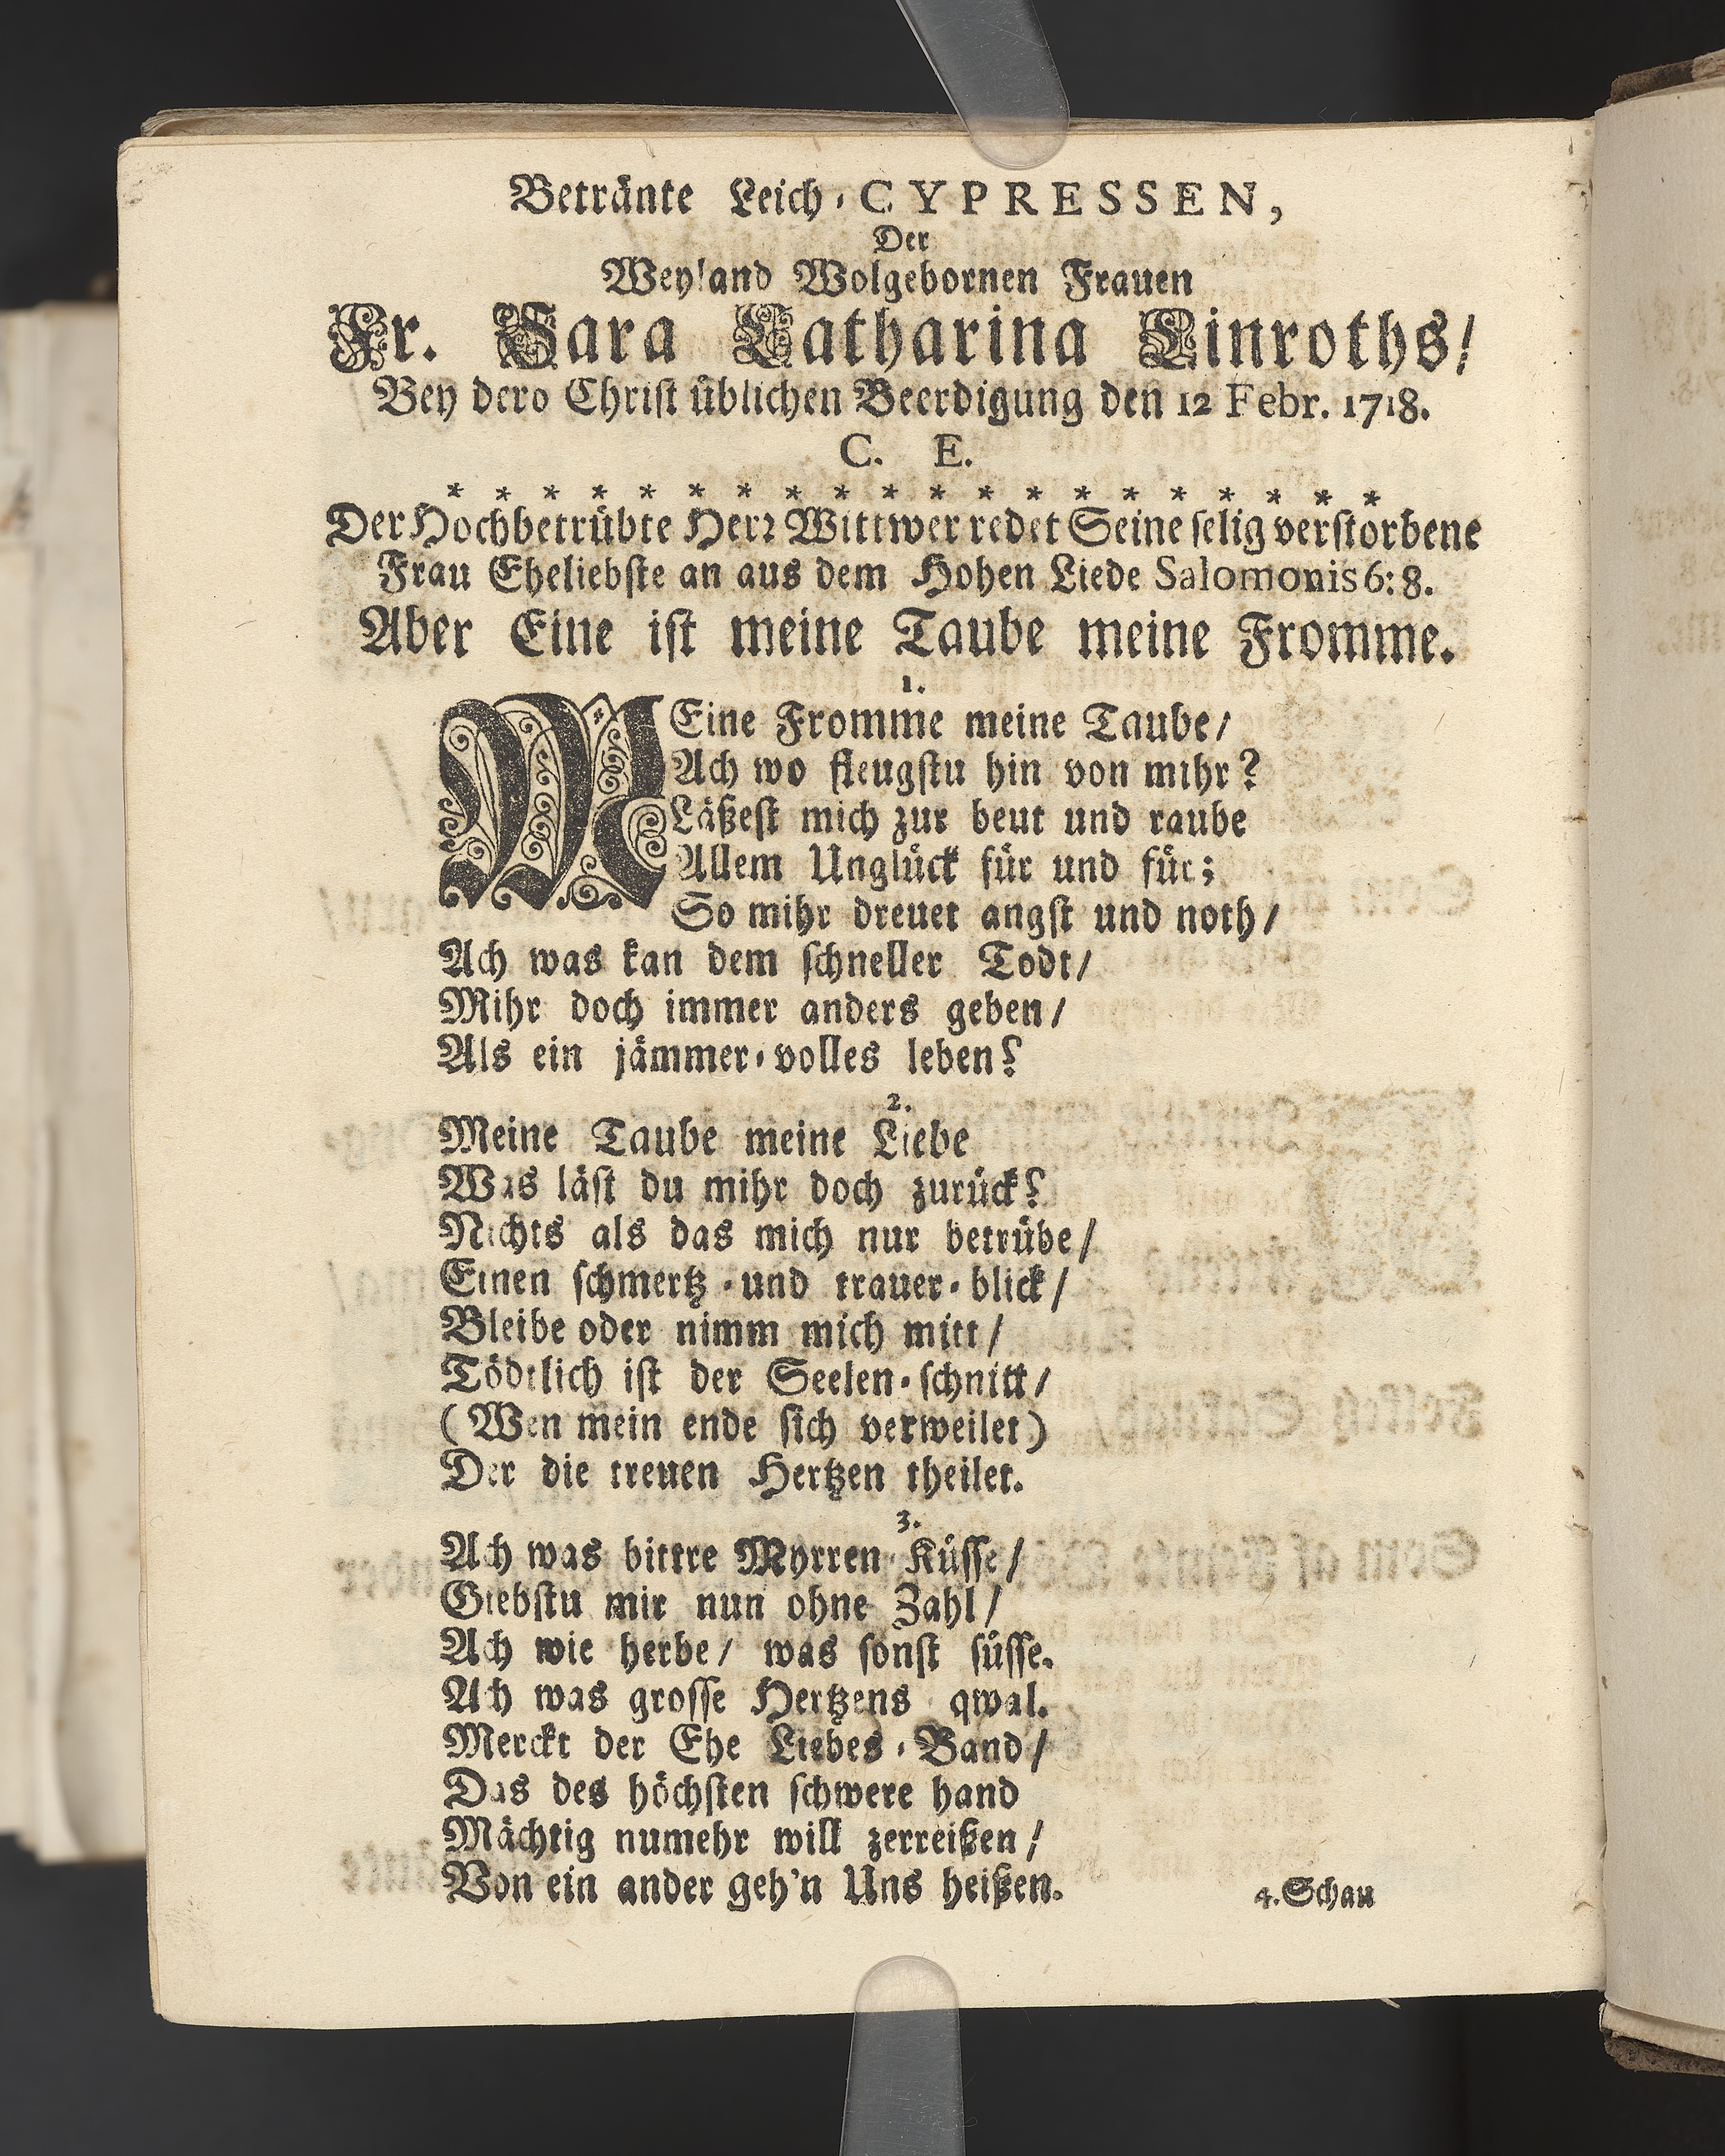 Betränte Leich-CYPRESSEN,
Der
Weyland Wolgebornen Frauen
Fr. Sara Catharina Linroths/
Bey dero Christ üblichen Beerdigung den 12 Febr. 1718.
C. E.
* * * * * * * * * * * * * * * * * * * *
Der Hochbetrübte Herr Wittwer redet Seine selig verstorbene
Frau Eheliebste an aus dem Hohen Liede Salomonis 6: 8.
Aber Eine ist meine Taube meine Fromme.
1.
MEine Fromme meine Taube/
Ach wo fleugstu hin von mihr?
Läßest mich zur beut und raube
Allem Unglück für und für;
So mihr dreuet angst und noth/
Ach was kan dem schneller Todt/
Mihr doch immer anders geben/
Als ein jämmer-volles leben?
2.
Meine Taube meine Liebe
Was läst du mihr doch zurück?
Nichts als das mich nur betrübe/
Einen schmertz-und trauer-blick/
Bleibe oder nimm mich mitt/
Tödtlich ist der Seelen-schnitt/
(Wen mein ende sich verweilet)
Der die treuen Hertzen theilet.
3.
Ach was bittre Myrren-Küsse/
Giebstu mir nun ohne Zahl/
Ach wie herbe/ was sonst süsse.
Ach was grosse Hertzens qwal.
Merckt der Ehe Liebes-Band/
Das des höchsten schwere hand
Mächtig numehr will zerreißen/
Von ein ander geh'n Uns heißen.
4. Schau